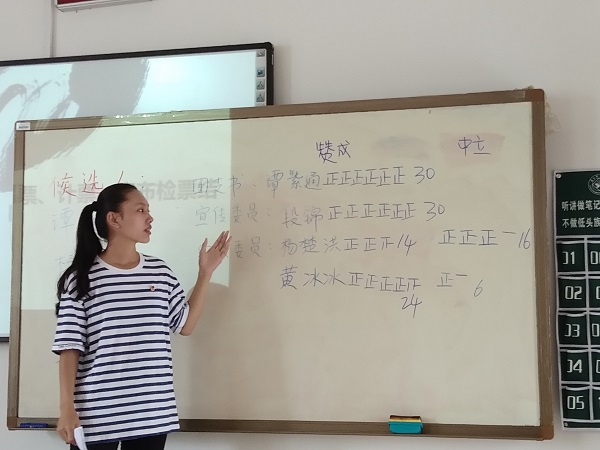 赞成 中立
候选人:
团支书: 谭景通 正正正正正正 30
宣传委员: 段婷 正正正正正正 30
委员: 杨楚洪 正正正 14 正正正一 16
黄冰冰 正正正正正 24 正一 6
听讲做笔记
不做低头族
01
02
03
04
05